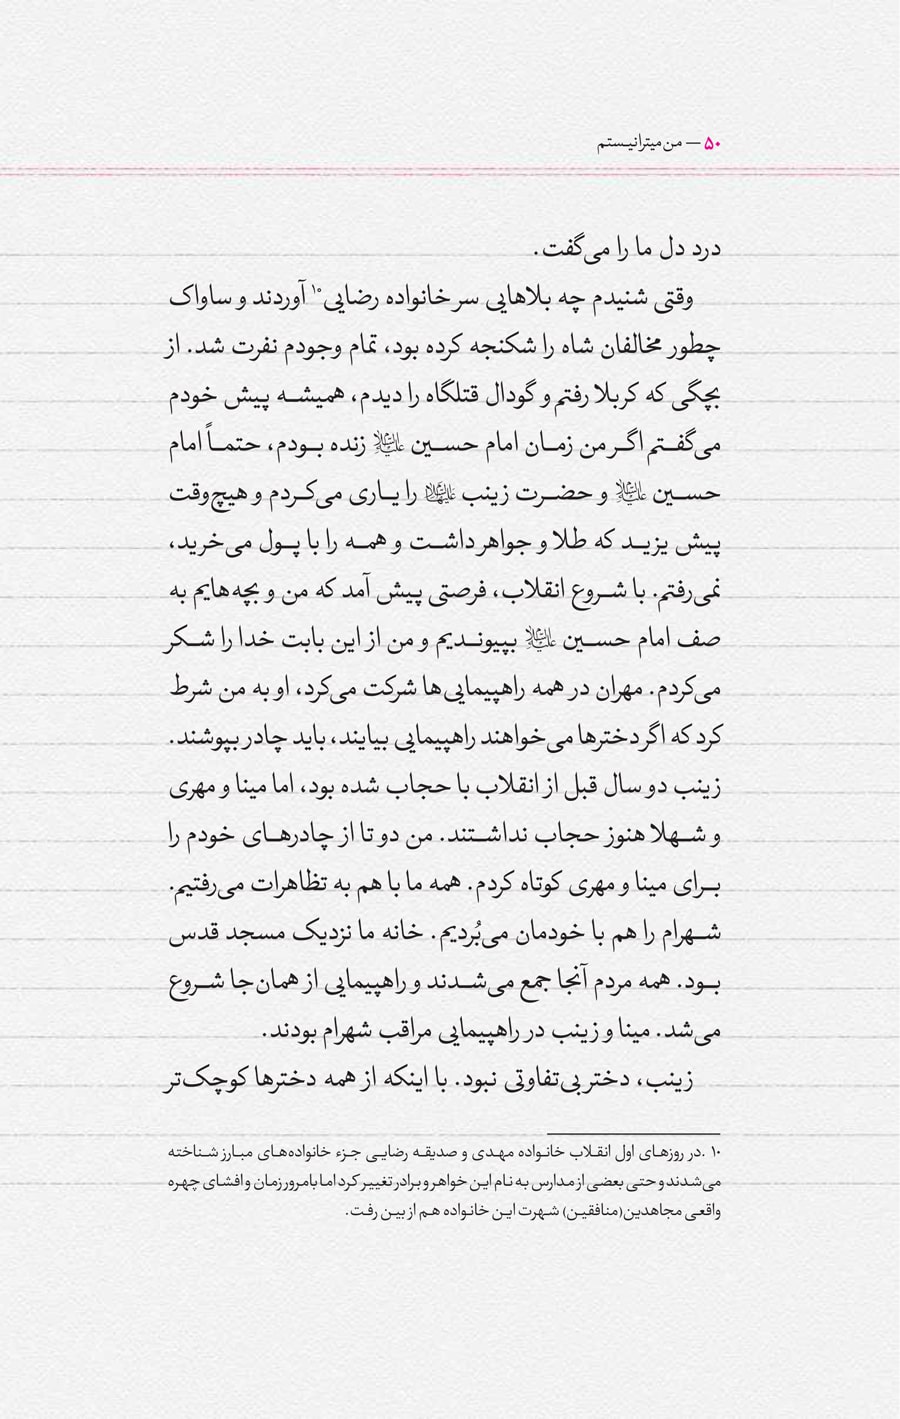 ۵۰ — من میترا نیستم
درد دل ما را می‌گفت.
وقتی شنیدم چه بلاهایی سر خانواده رضایی۱۰ آوردند و ساواک
چطور مخالفان شاه را شکنجه کرده بود، تمام وجودم نفرت شد. از
بچگی که کربلا رفتم و گودال قتلگاه را دیدم، همیشه پیش خودم
می‌گفتم اگر من زمان امام حسین علیه‌السلام زنده بودم، حتماً امام
حسین علیه‌السلام و حضرت زینب علیهاالسلام را یاری می‌کردم و هیچ‌وقت
پیش یزید که طلا و جواهر داشت و همه را با پول می‌خرید،
نمی‌رفتم. با شروع انقلاب، فرصتی پیش آمد که من و بچه‌هایم به
صف امام حسین علیه‌السلام بپیوندیم و من از این بابت خدا را شکر
می‌کردم. مهران در همه راهپیمایی‌ها شرکت می‌کرد، او به من شرط
کرد که اگر دخترها می‌خواهند راهپیمایی بیایند، باید چادر بپوشند.
زینب دو سال قبل از انقلاب با حجاب شده بود، اما مینا و مهری
و شهلا هنوز حجاب نداشتند. من دو تا از چادرهای خودم را
برای مینا و مهری کوتاه کردم. همه ما با هم به تظاهرات می‌رفتیم.
شهرام را هم با خودمان می‌بُردیم. خانه ما نزدیک مسجد قدس
بود. همه مردم آنجا جمع می‌شدند و راهپیمایی از همان‌جا شروع
می‌شد. مینا و زینب در راهپیمایی مراقب شهرام بودند.
زینب، دختر بی‌تفاوتی نبود. با اینکه از همه دخترها کوچک‌تر
۱۰ .در روزهای اول انقلاب خانواده مهدی و صدیقه رضایی جزء خانواده‌های مبارز شناخته
می‌شدند و حتی بعضی از مدارس به نام این خواهر و برادر تغییر کرد اما با مرور زمان و افشای چهره
واقعی مجاهدین(منافقین) شهرت این خانواده هم از بین رفت.